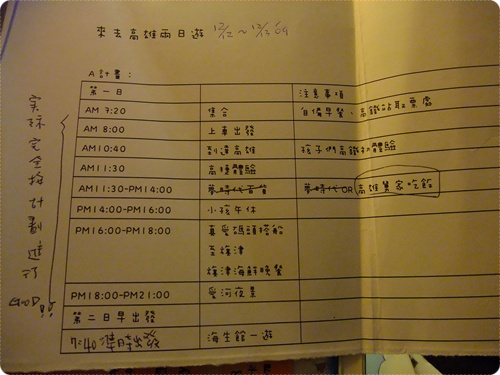 來去高雄兩日遊 12/12~12/13 09
A計畫:
第一日 注意事項
AM 7:20 集合 自備早餐、高鐵站取票處
AM 8:00 上車出發
AM10:40 到達高雄 孩子們高鐵初體驗
AM11:30 高捷體驗
AM11:30-PM14:00 夢時代百貨 夢時代OR高雄舅家吃飯
PM14:00-PM16:00 小孩午休
PM16:00-PM18:00 真愛碼頭搭船
至旗津
旗津海鮮晚餐
PM18:00-PM21:00 愛河夜景
第二日早出發
7:40準時出發 海生館一遊
實際完全按計劃進行
GOOD!!